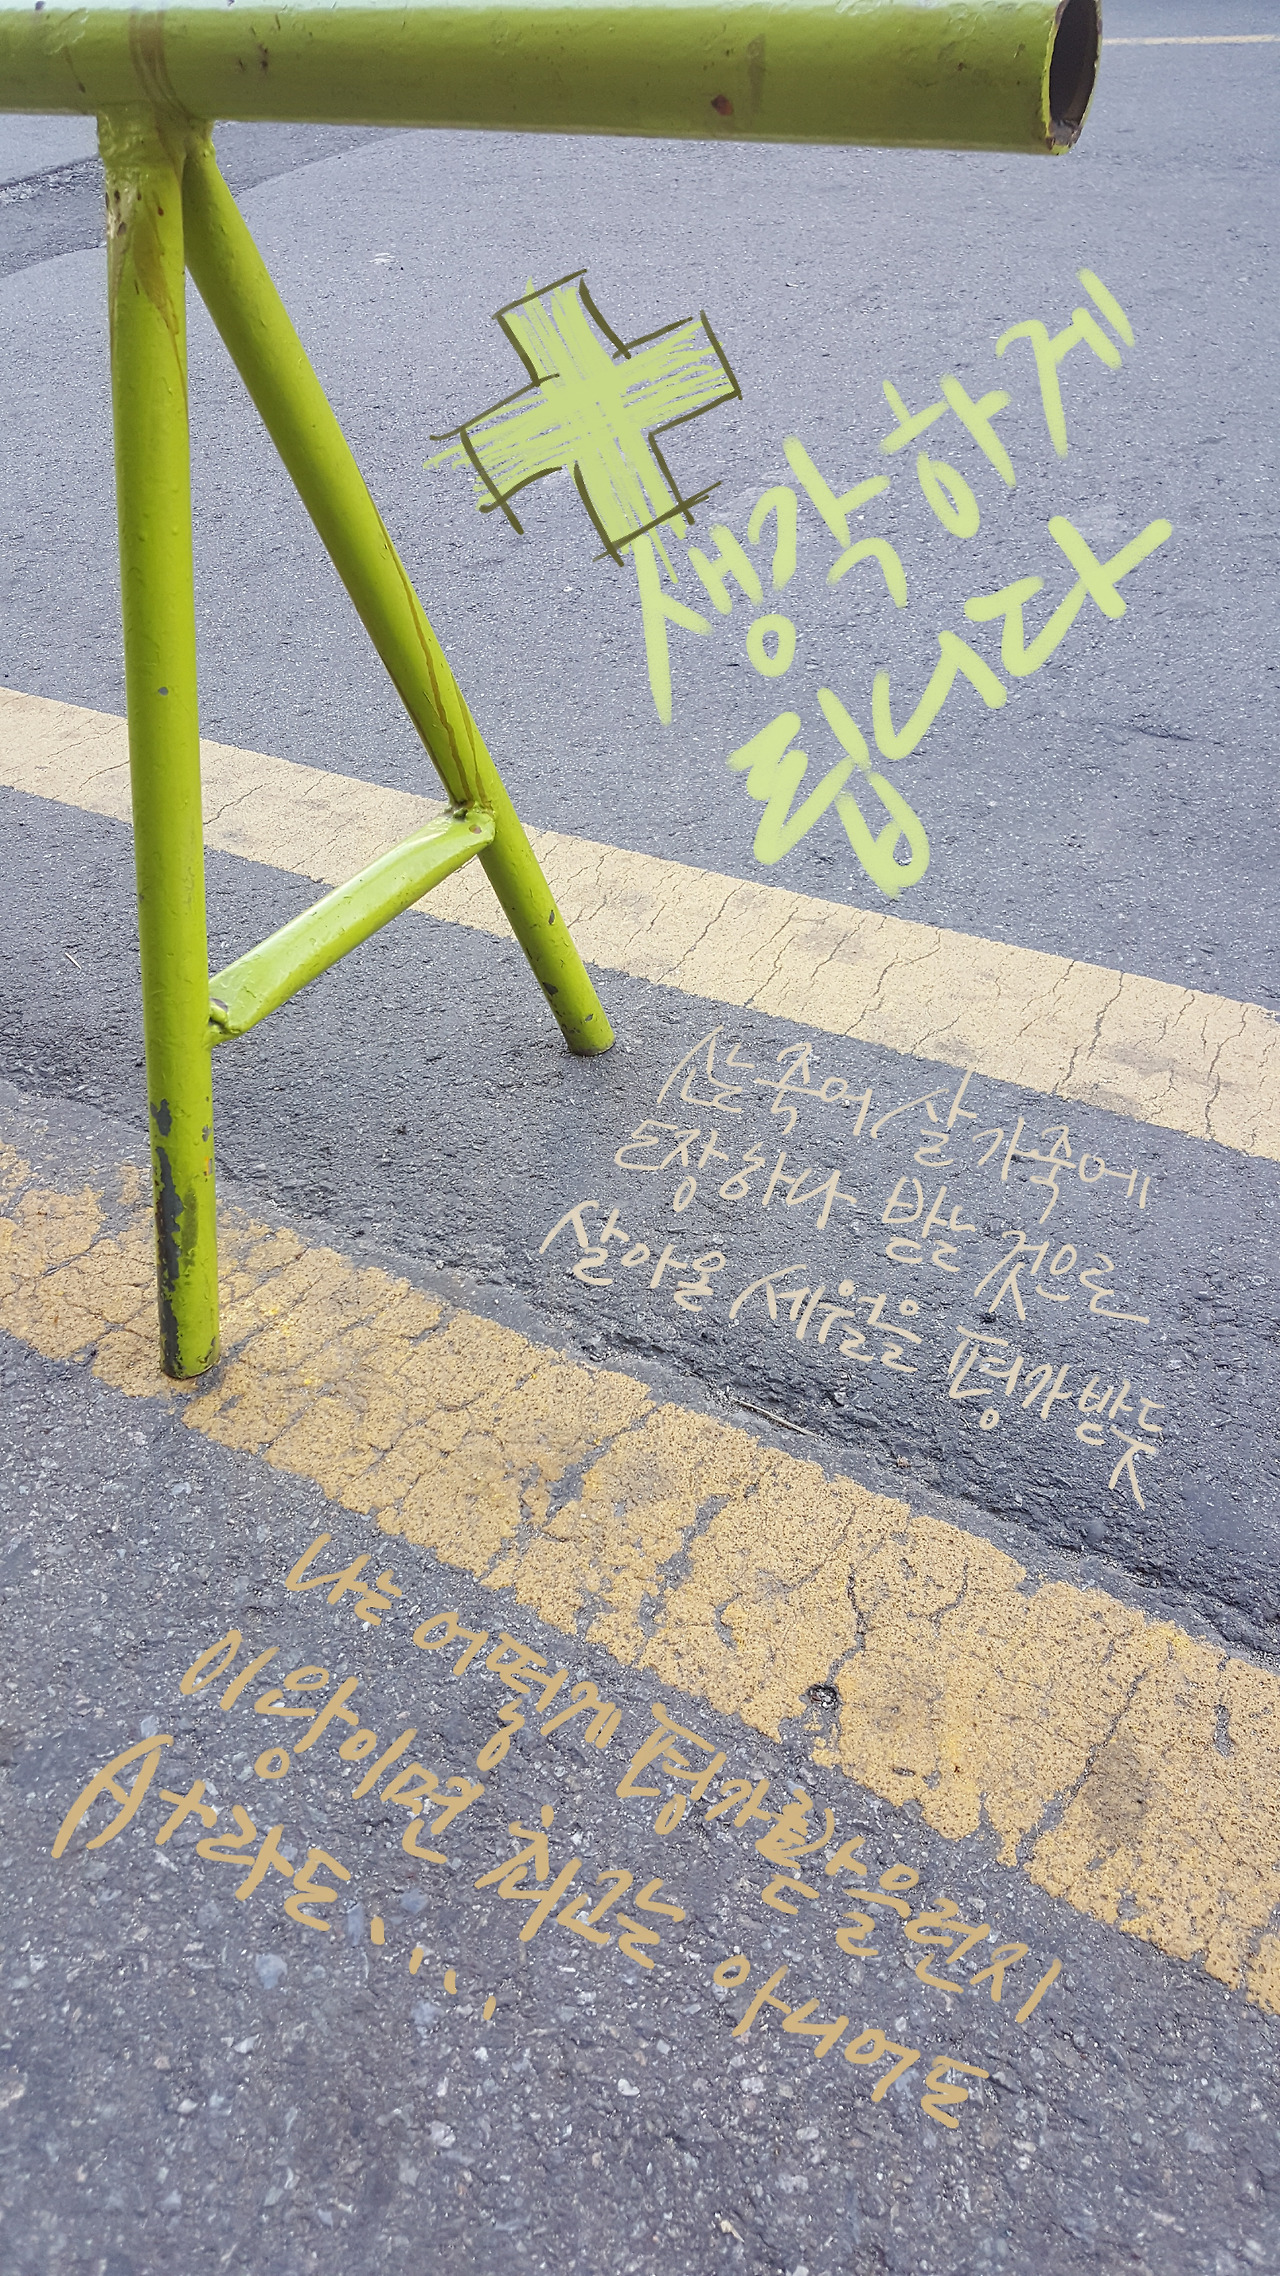 생각하게
됩니다
산 죽어 살가죽에
도장하나 받는 것으로
살아온 세월을 평가받듯
나는 어떻게 평가를 받을런지
이왕이면 최고는 아니어도
A+라도....